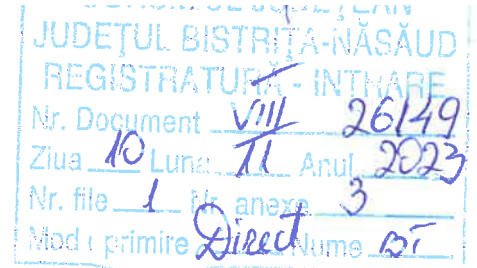 CONSILIUL JUDEŢEAN
JUDEŢUL BISTRIŢA-NĂSĂUD
REGISTRATURĂ - INTRARE
Nr. Document VIII 26149
Ziua 10 Luna 11 Anul 2023
Nr. file 1 Nr. anexe 3
Mod primire Direct Nume BT